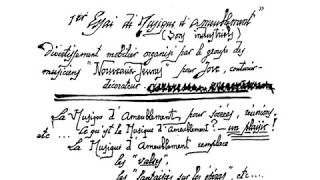 1er Essai de "Musique d'Ameublement"
(Sons industriels)
Divertissement mobilier organisé par le groupe des
musiciens "Nouveaux Jeunes" pour Jove, couturier-
décorateur
La "Musique d'Ameublement" pour soirées, réunions,
etc... Ce qu'est la "Musique d'Ameublement"? – un plaisir!
La "Musique d'Ameublement" remplace
les "valses"
les "fantaisies sur les opéras", etc...